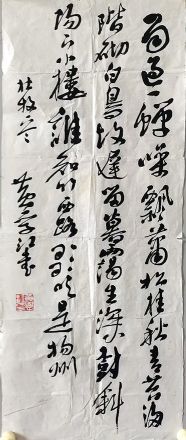 雨過一蟬噪飄蕭松桂秋青苔滿
階砌白鳥故遲留暮靄生深樹斜
陽下小樓誰知竹西路歌吹是揚州
杜牧 黄 江書